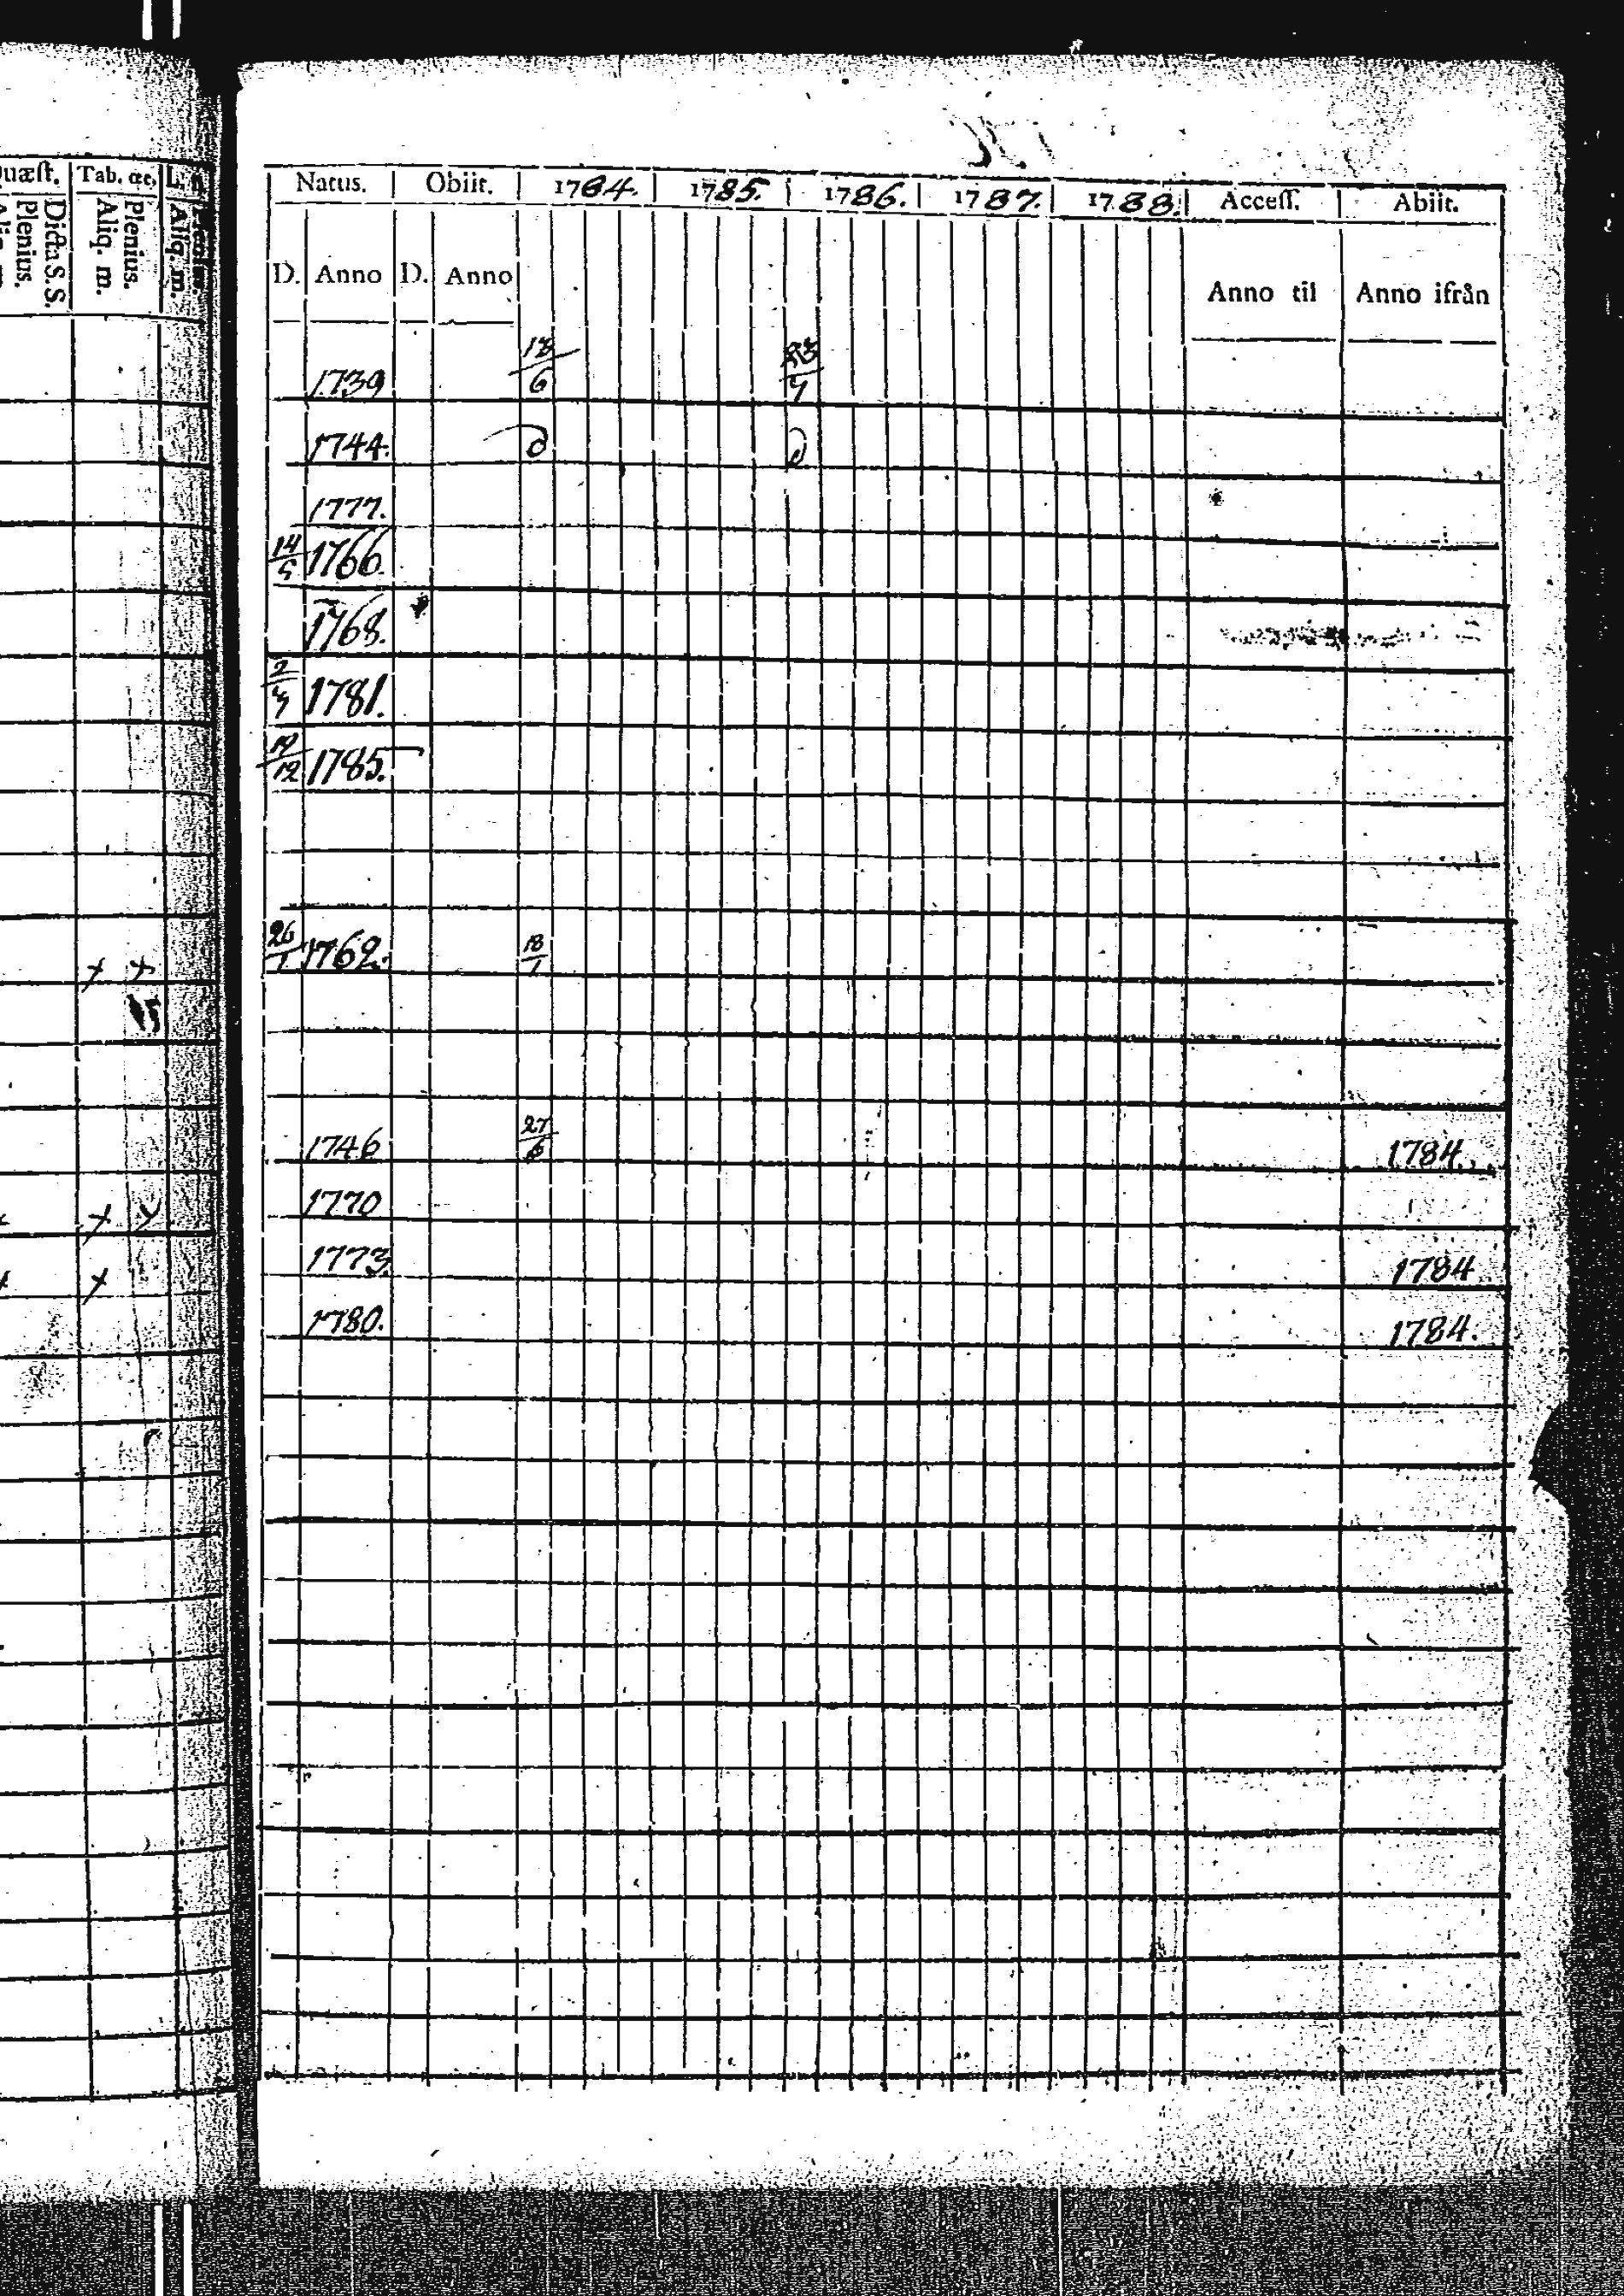 Tab. œc,
Dicta S. S.
Plenius.
Plenius.
Aliq. m.
Aliq. m.
Natus. Obiit. 1784. 1785. 1786. 1787. 1788. Accesſ. Abiit.
D. Anno D. Anno Anno til Anno ifrån
1739 18/6
1744.
1777.
14/5 1766.
1768.
1781.
19/12 1785.
26/1 1762. 18/1
x x
15
1746 27/6 1784.
1770
x y
1773. 1784
x x
1780. 1784.